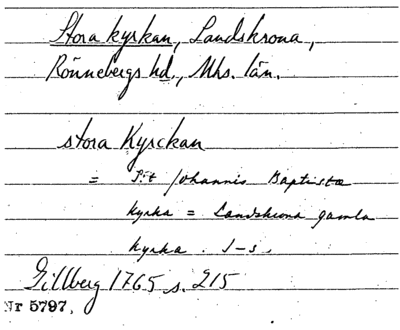 Stora kyrkan, Landskrona,
Rönnebergs hd., Mhs. län.
stora Kyrckan
= S:t Johannis Baptista
kyrka = Landskrona gamla
kyrka. J-s.
Gillberg 1765 s. 215
Nr 5797.